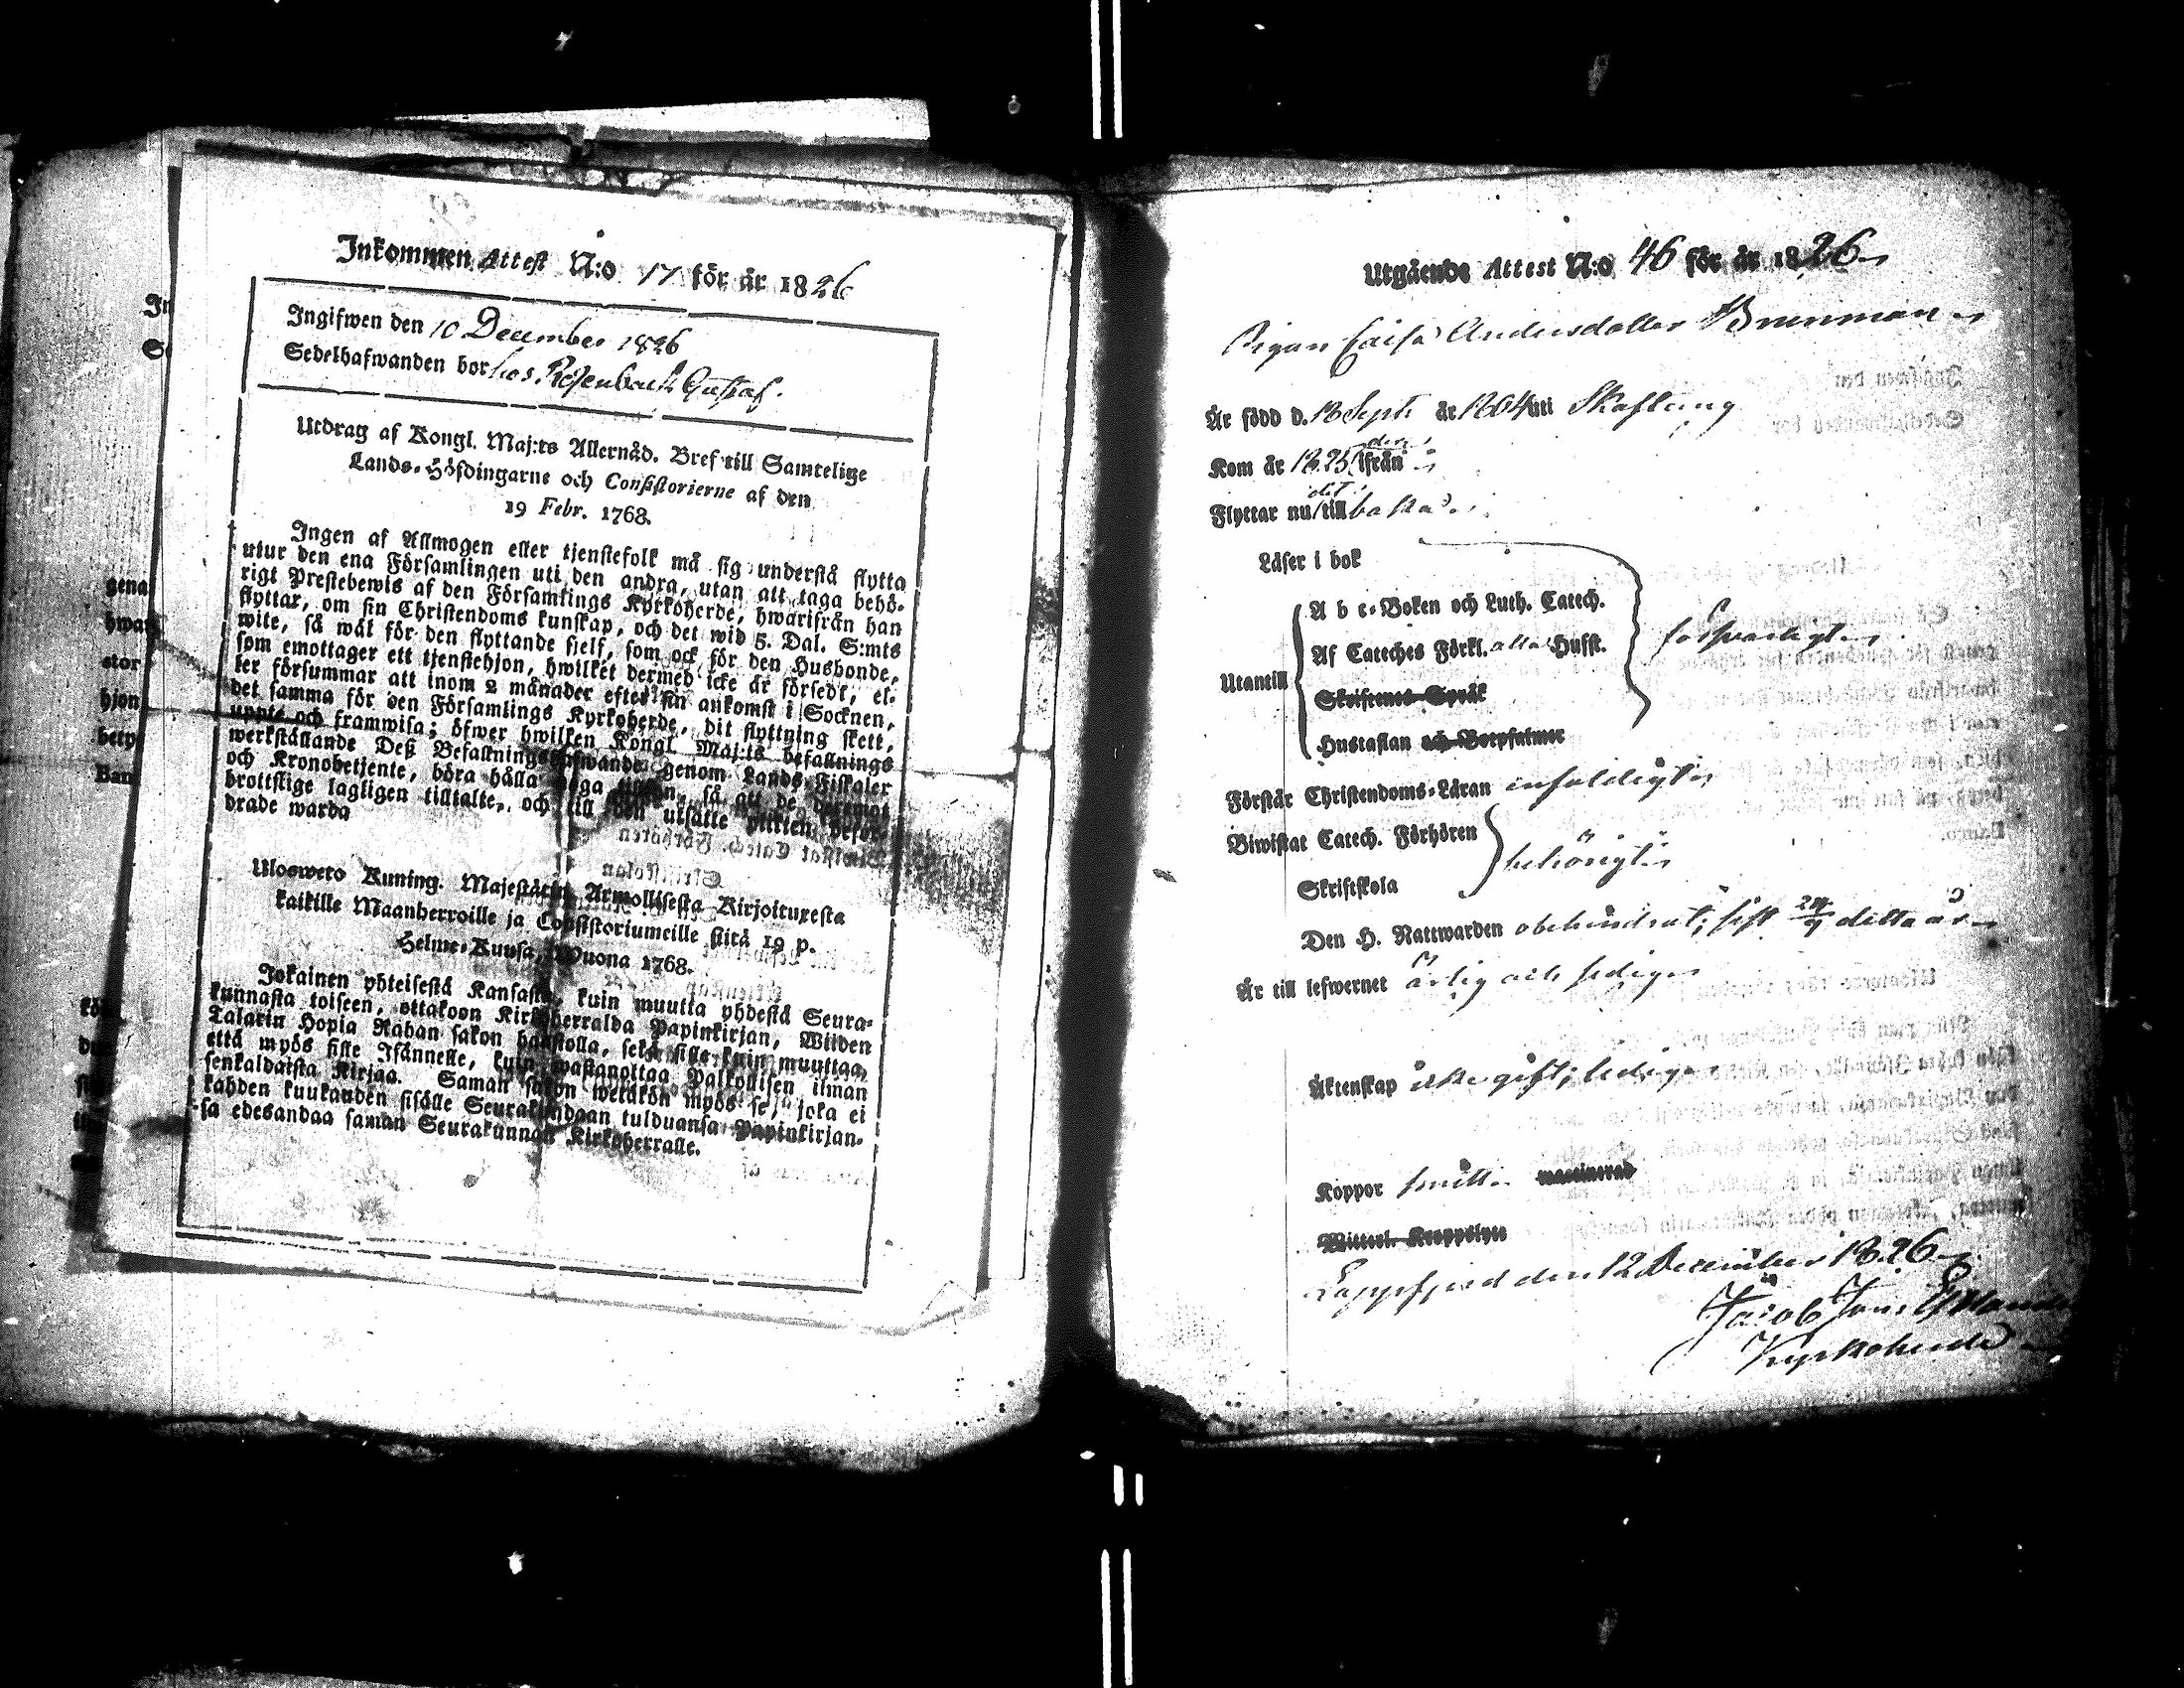 Inkommen Attest N:o 17 för år 1826
Ingifwen den 10 December 1826
Sedelhafwanden bor hos Rosenback Gustaf.
Utdrag af Kongl. Maj:ts Allernåd. Bref till Samtelige
Lands-Höfdingarne och Consistorierne af den
19 Febr. 1768.
Ingen af Allmogen eller tjenstefolk må sig understå flytta
utur den ena Församlingen uti den andra, utan att taga behö-
rigt Prestebewis af den Församlings Kyrkoherde, hwarifrån han
flyttar, om sin Christendoms kunskap, och det wid 5. Dal. S:mts
wite, så wäl för den flyttande sielf, som ock för den Husbonde,
som emottager ett tjenstehjon, hwilket dermed icke är försedt, el-
ler försummar att inom 2 månader efter sin ankomst i Socknen,
det samma för den Församlings Kyrkoherde, dit flyttning skett,
uppte och framwisa; öfwer hwilken Kongl. Maj:ts befallnings
werkställande Deß Befallningshafwande genom Lands-Fiskaler
och Kronobetjente, böra hålla noga tillsyn, så att de, deremot
brottslige lagligen tilltalte, och till den utsatte plikten beför-
drade warda
Uloswero Kuning. Majestätin Armollisesta Kirjoituxesta
kaikille Maanherroille ja Consistoriumeille siitä 19 p.
Helme-Kuusa, Wuona 1768.
Jokainen yhteisestä Kansasta, kuin muutta yhdestä Seura-
kunnasta toiseen, ottakoon Kirkoherralda Papinkirjan, Wiiden
Talarin Hopia Rahan sakon haastolla, sekä sille kuin muuttaa,
että myös sille Isännelle, kuin wastanottaa Palkollisen ilman
senkaldaista Kirjaa. Saman sakon wetäkön myös se, joka ei
kahden kuukauden sisälle Seurakundaan tulduansa Papinkirjan-
sa edesandaa saman Seurakunnan Kirkoherralle.
Utgående Attest N:o 46 för år 1826
Pigan Caisa Andersdotter Brunman
Är född d. 18 Sept. år 1804 uti Skaftung
Kom år 1825 derifrån
Flyttar nu dit tillbaka
Läser i bok
A b c-Boken och Luth. Catech.
Af Cateches Förkl. alla Husst.
försvarligt
Utantill
Skriftenes Språk
Hustaflan och Botpsalmer
Förstår Christendoms-Läran enfaldigt
Biwistat Catech. Förhören
behörigt
Skriftskola
Den H. Nattwarden obehindrat; sist 24/9 detta år
Är till lefwernet ärlig och sedig
Äktenskap icke gift; ledig
Koppor haft vaccinerad
Wittterl. Kroppslyte
Lappfjerd den 12 December 1826
Jacob Jons
Kyrkoherde